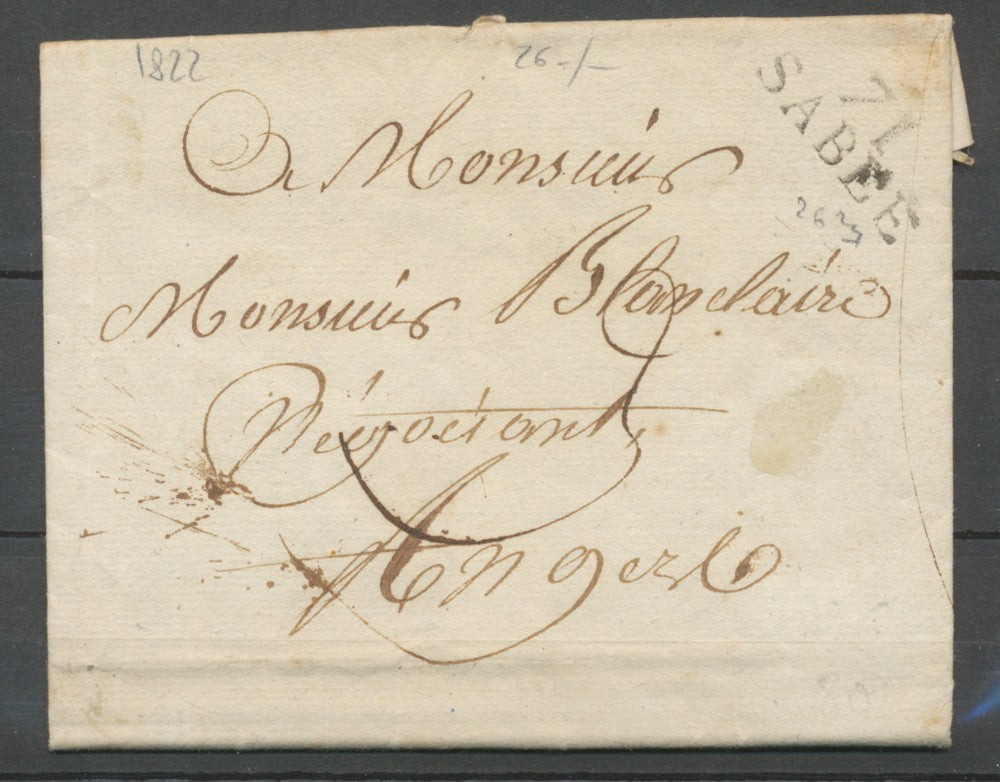 1822
26-/-
71
SABLÉ
A Monsieur
Monsieur Blanclaire
Négociant
Angers